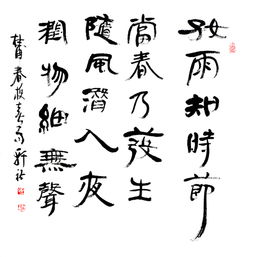 好雨知時節
當春乃發生
隨風潛入夜
潤物細無聲